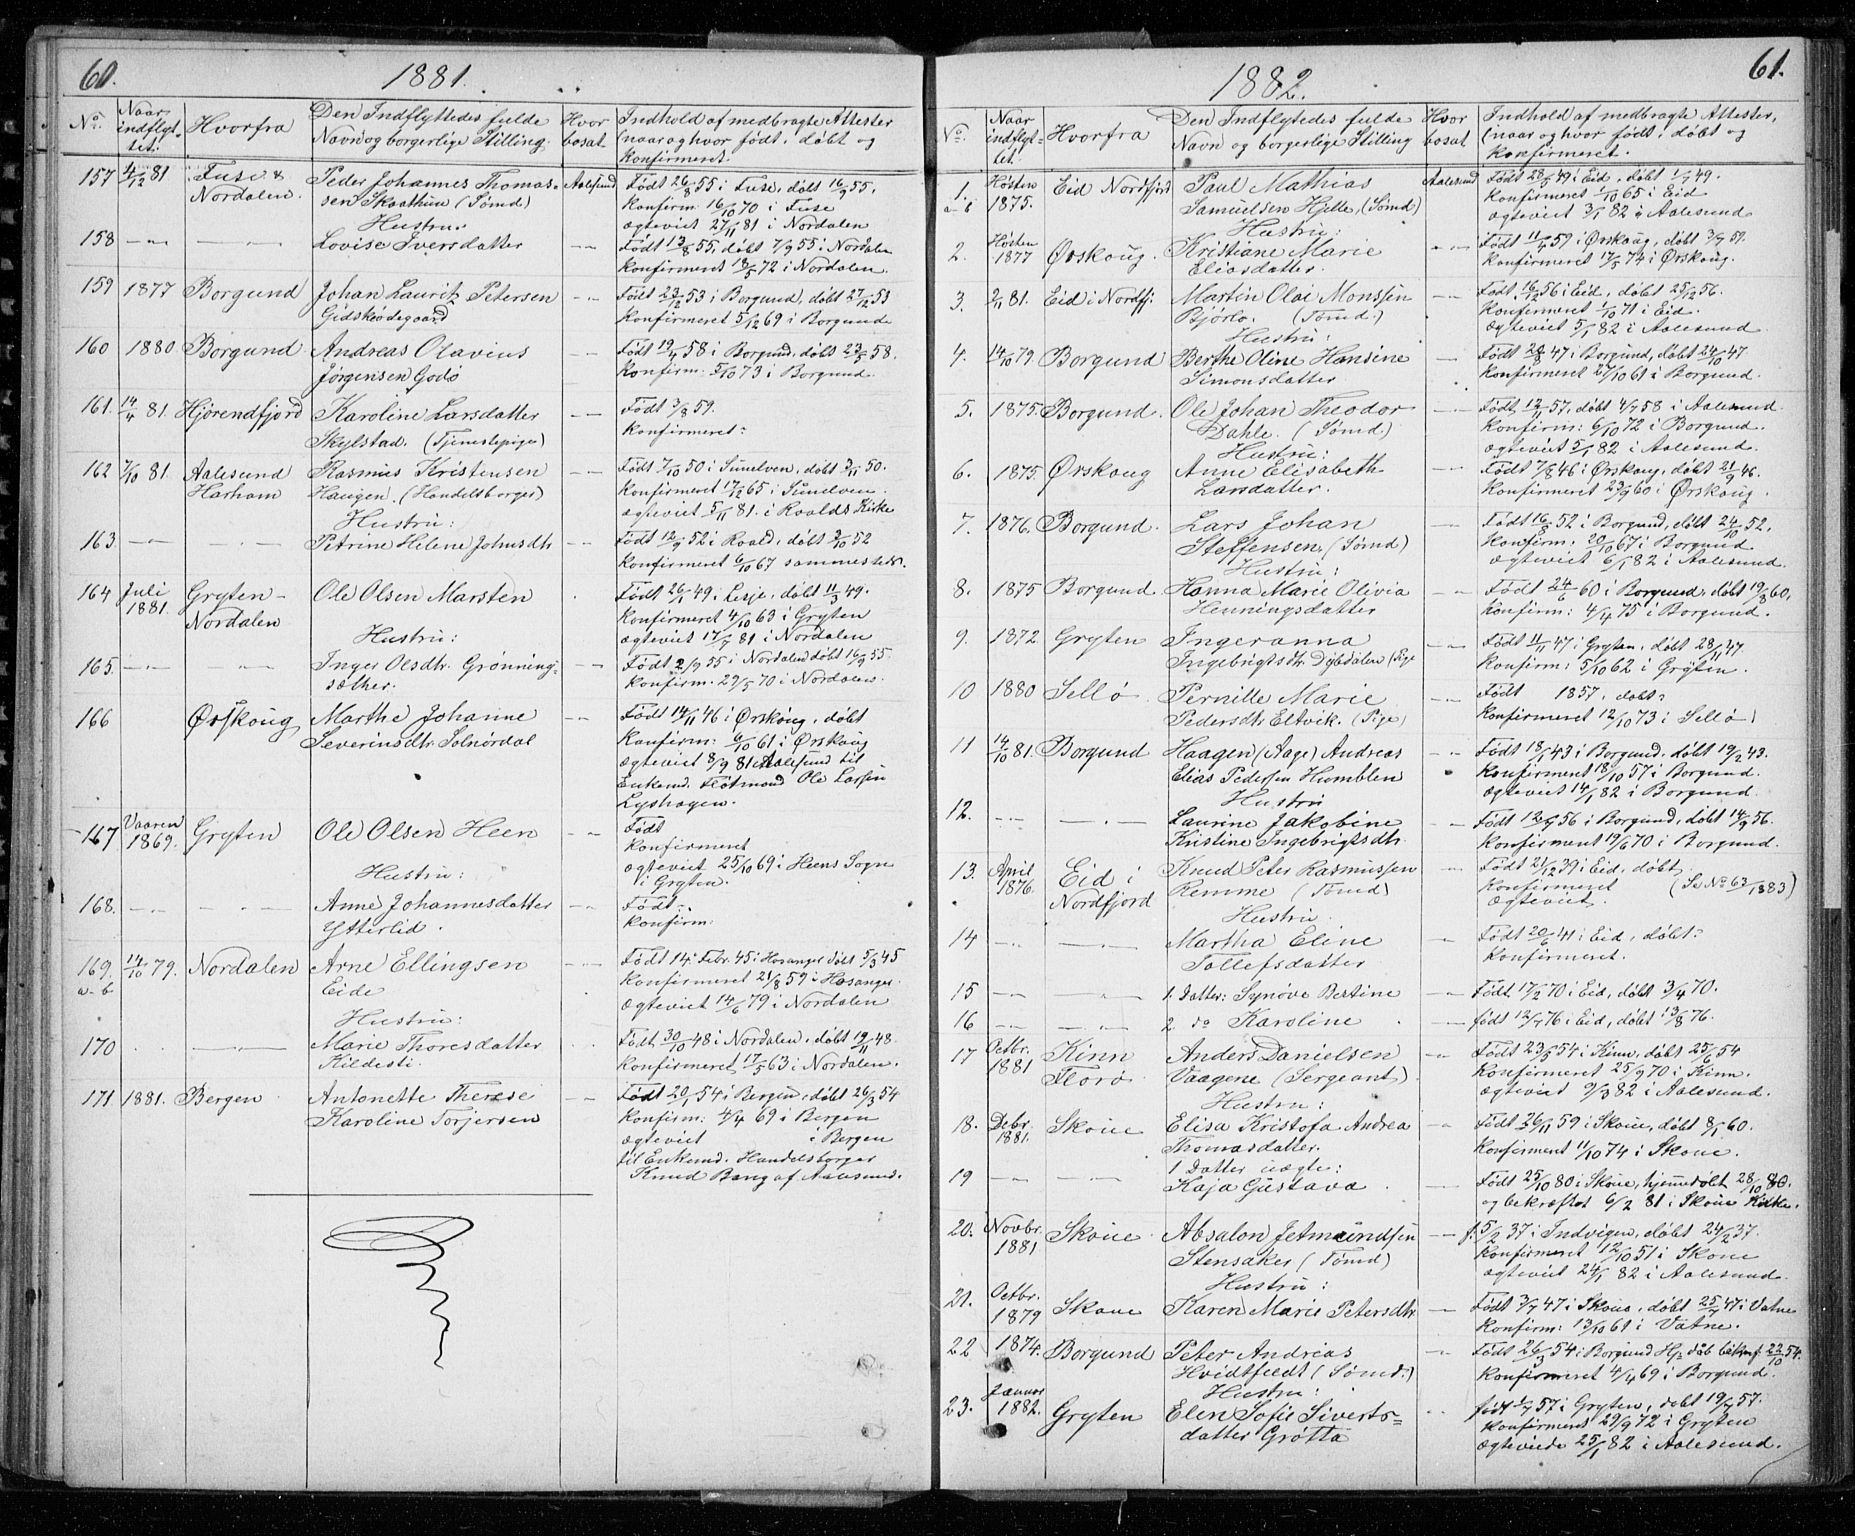 60.
1881.
No.
Naar indflyt-tet.
Hvorfra
Den Indflyttedes fulde Navn og borgerlige Stilling.
Hvor bosat
Indhold af medbragte Attester (naar og hvor født, døbt og konfirmeret.
157 4/12 81 Fuse & Peder Johannes Thomas- Aalesund Født 26/8 55 i Fuse, døbt 16/9 55.
Nordalen. sen Skaathun (Tømd) Konfirm 16/10 70 i Fuse
Hustru. ægteviet 27/11 81 i Nordalen
158 Lovise Iversdatter Født 13/8 55, døbt 7/9 55 i Nordalen
Konfirmeret 18/5 72 i Nordalen.
159 1877 Borgund Johan Lauritz Petersen Født 23/12 53 i Borgund, døbt 27/12 53
Gidskeødegaard Konfirmeret 5/12 69 i Borgund
160 1880 Borgund Andreas Olavius Født 19/4 58 i Borgund, døbt 23/5 58.
Jørgensen Godø Konfirm. 5/10 73 i Borgund.
161. 14/4 81. Hjørendfjord Karoline Larsdatter Født 3/8 59.
Skylstad. (Tjenestepige) Konfirmeret:
162 7/10 81. Aalesund Rasmus Kristensen Født 7/10 50 i Sunelven, døbt 3/11 50.
Harham Haugen. (Handelsborger) Konfirmeret 17/12 65 i Sunelven.
ægteviet 5/11 81. i Roalds Kirke
Hustru:
163 Petrine Helene Johnsdtr Født 12/9 52 i Roald, døbt 3/10 52
Konfirmeret 6/10 67 sammesteds.
164 Juli Gryten- Ole Olsen Marsten Født 26/1 49. Lesje, døbt 11/3 49.
1881. Nordalen Konfirmeret 4/10 63 i Gryten
Hustru: Ægteviet 17/7 81 i Nordalen
165. Inger Olsdtr. Grønning- Født 2/9 55 i Nordalen døbt 16/9 55.
sæther. Konfirm. 29/5 70 i Nordalen.
166 Ørskoug Marthe Johanne Født 14/11 46 i Ørskoug, døbt
Severinsdtr Solnørdal Konfirm: 6/10 61 i Ørskoug
ægteviet 8/9 81 i Aalesund til
Enkemd. Fløtmand Ole Larsen
Lyshagen.
167 Vaaren Gryten Ole Olsen Heen Født
1869. Konfirmeret
ægteviet 25/10 69 i Heens Sogn
Hustru: i Gryten.
168. Anne Johannesdatter Født.
Ytterlid. Konfirm:
169. 14/10 79. Nordalen Arne Ellingsen Født 14 Febr. 45 i Hosanger døbt 5/3 45
a-b Eide Konfirmeret 21/8 59 i Hosanger.
Hustru: Ægteviet 14/6 79 i Nordalen
170 Marie Thoresdatter Født 30/10 48 i Nordalen, døbt 19/11 48.
Kildesti. Konfirmeret 17/5 63 i Nordalen.
171 1881. Bergen Antonette Therese Født 20/1 54 i Bergen, døbt 26/3 54
Karoline Torjersen Konfirm: 4/4 69 i Bergen
ægteviet i Bergen
til Enkemd. Handelsborger
Knud Bang af Aalesund.
61.
1882.
No.
Naar indflyt-tet
Hvorfra
Den Indflytedes fulde Navn og borgerlige Stilling
Hvor bosat
Indhold af medbragte Attester, (naar og hvor født, døbt og konfirmeret.
1. Høsten Eid Nordfjord Paul Mathias Aalesund Født 28/5 49 i Eid, døbt 1/7 49.
a-b 1875. Samuelsen Hjelle, (Tømd) Konfirmeret 1/10 65 i Eid
Hustru: ægteviet 3/1 82 i Aalesund
2. Høsten Ørskoug. Kristiane Marie Født 11/4 59 i Ørskoug, døbt 3/7 59.
1877 Eliasdatter. Konfirmeret 17/5 74 i Ørskoug.
3. 2/11 81. Eid i Nordfj: Martin Olai Monssen Født 16/12 56 i Eid, døbt 25/12 56.
Bjørlo. (Tømd.) Konfirmeret 1/10 71 i Eid.
Hustru: Ægteviet 5/1 82 i Aalesund.
4. 14/10 79. Borgund Berthe Oline Hansine Født 28/8 47 i Borgund, døbt 24/10 47
Simonsdatter. Konfirmeret 27/10 61 i Borgund.
5. 1875. Borgund. Ole Johan Theodor Født 12/11 57, døbt 4/7 58 i Aalesund.
Dahle. (Tømd.) Konfirm: 6/10 72 i Borgund.
Hustru: ægteviet 5/1 82 i Aalesund.
6. 1875. Ørskoug Anne Elisabeth Født 7/8 46 i Ørskoug, døbt 21/9 46.
Larsdatter. Konfirmeret 23/9 60 i Ørskoug.
7. 1876. Borgund. Lars Johan Født 16/8 52 i Borgund, døbt 24/10 52.
Steffensen, (Tømd) Konfirm: 20/10 67 i Borgund
Hustru: ægteviet 6/1 82 i Aalesund.
8. 1875 Borgund. Hanna Marie Olivia Født 24/6 60 i Borgund, døbt 19/8 60.
Henningsdatter Konfirm: 4/4 75 i Borgund.
9. 1872. Gryten Ingeranna Født 11/11 47 i Gryten, døbt 28/11 47
Ingebrigtsdtr Dybdalen (Pige Konfirm: 5/10 62 i Gryten.
10 1880 Sellø Pernille Marie Født 1857. døbt?
Pedersdtr Eltvik. (Pige) Konfirmeret 12/10 73 i Sellø
11 14/10 81. Borgund Haagen (Aage) Andreas Født 18/1 43 i Borgund, døbt 19/2 43.
Elias Pedersen Humblen Konfirment 18/10 57 i Borgund.
Hustru Ægteviet 14/1 82 i Borgund.
12. Laurine Jakobine Født 12/9 56 i Borgund, døbt 14/9 56.
Kristine Ingebrigtsdtr. Konfirment 19/6 70 i Borgund.
13. April Eid i Knud Peter Rasmussen Født 21/12 39 i Eid, døbt
1876. Nordfjord Remme (Tømd) Konfirmeret (Se No 63/1883)
Hustru. Ægteviet.
14 Martha Eline Født 20/6 41 i Eid, døbt:
Tollefsdatter Konfirmeret.
15 1. Datter: Synøve Bertine Født 17/2 70 i Eid, døbt 3/4 70.
16 2. do Karoline født 12/7 76 i Eid, døbt 13/8 76.
17 Octbr. Kinn Anders Danielsen Født 23/5 54 i Kinn, døbt 25/6 54
1881 Florø Vaagene (Sergeant) Konfirmeret 25/9 70 i Kinn.
Hustru: ægteviet 9/3 82 i Aalesund.
18. Debr. Skoue Elisa Kristofa Andrea Født 26/11 59 i Skoue, døbt 8/1 60.
1881. Thomasdatter. Konfirment 11/10 74 i Skoue.
1 Datter uægte:
19 Kaja Gustava Født 25/10 80 i Skoue, hjemmedøbt 28/10 80.
og bekræftet 6/2 81 i Skoue Kirke.
20. Novbr. Skoue Absalon Jetmundsen f. 5/2 37 i Indvigen, døbt 24/2 37.
1881 Stensaker (Tømd) Konfirment 12/10 51 i Skoue
Hustru: ægteviet 24/1 82 i Aalesund.
21. Octbr. Skoue Karen Marie Petersdtr Født 3/7 47 i Skoue, døbt 25/7 47 i Vatne
1879 Konfirm: 13/10 61 i Vatne.
22 1874. Borgund Peter Andreas Født 26/3 54 i Borgund Hj. døb bekræf. 22/10 54.
Hvidtfeldt (Tømd.) Konfirmeret 4/4 69 i Borgund.
Hustru:
23. Januar Gryten Elen Sofie Siverts= født 1/7 57 i Gryten, døbt 19/7 57.
1882. datter Grøtta Konfirment 29/9 72 i Gryten
ægteviede 25/1 82 i Aalesund.